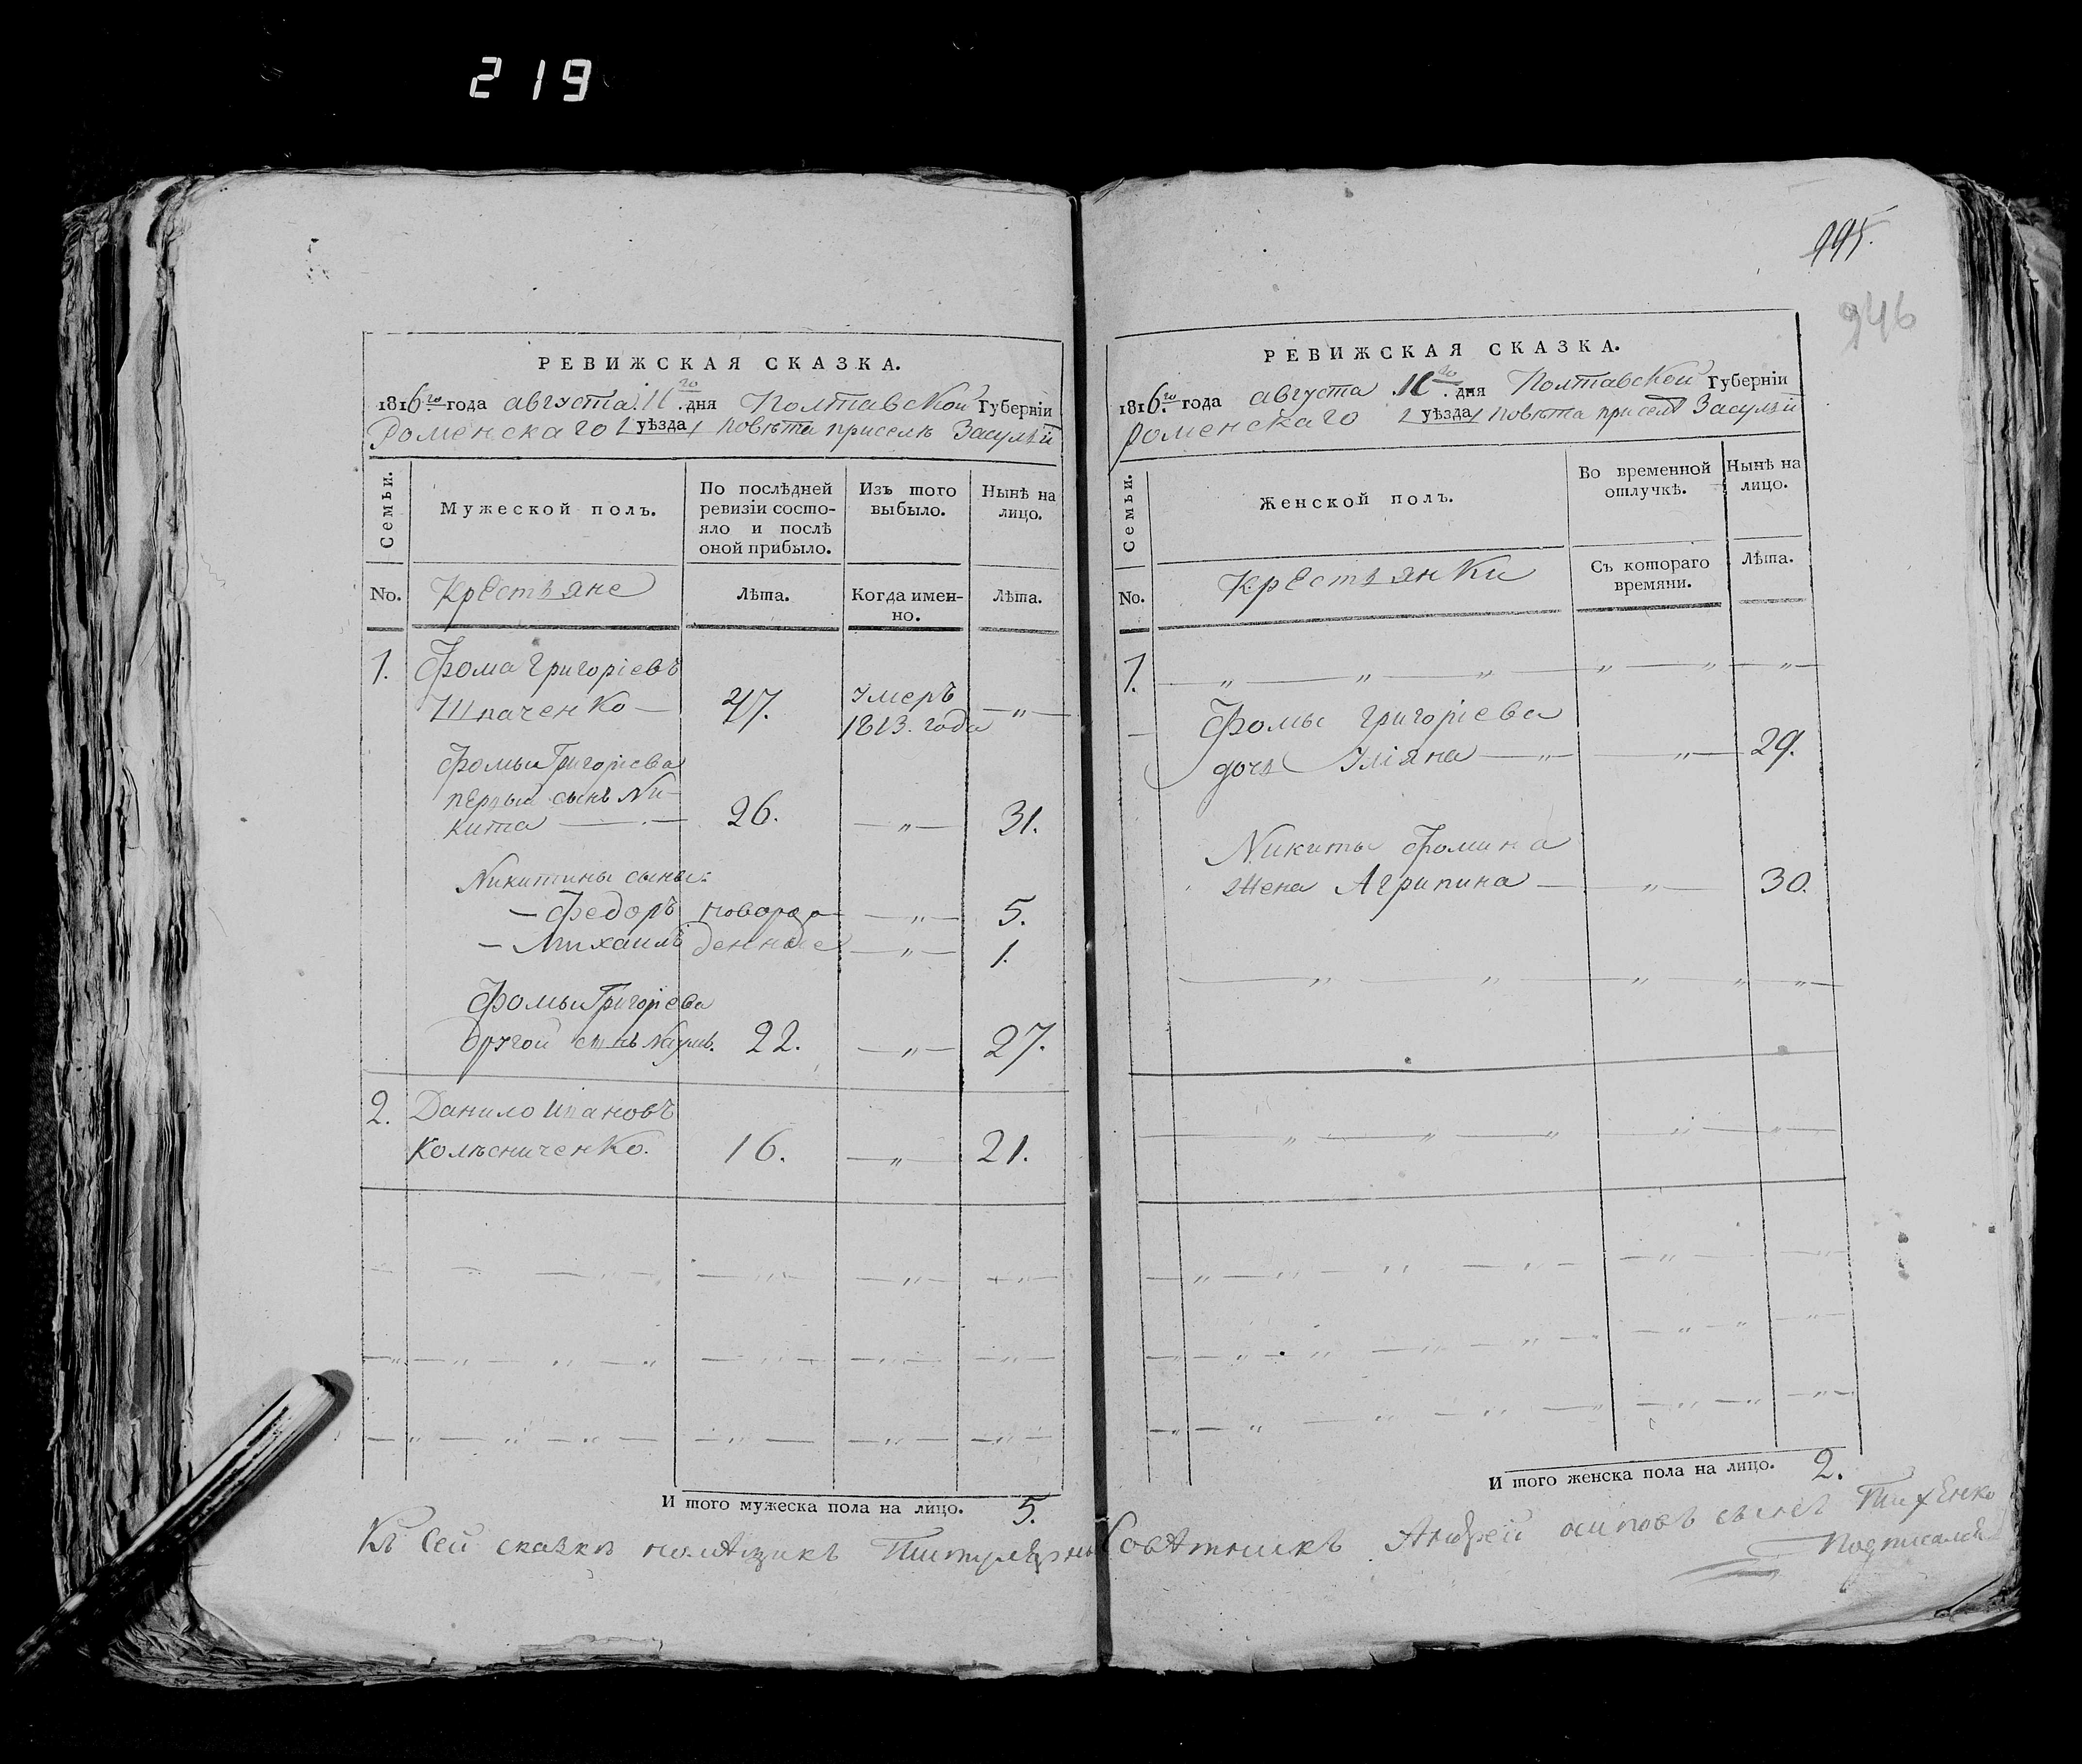 219
995.
946
РЕВИЖСКАЯ СКАЗКА.
1816го года августа 11го дня Полтавской Губерніи
Роменскаго уѣзда повѣта приселѣ Засулъи
Семьи.
Мужеской полъ.
По послѣдней ревизіи состояло и послѣ оной прибыло.
Изъ того выбыло.
Нынѣ на лицо.
No.
Крестьяне
Лѣта.
Когда именно.
Лѣта.
1. Фома Григоріевъ
Шпаченко — 47. Умеръ 1813. года — „ —
Фомы Григоріева
первый сынъ Ни-
кита — 26. — „ — 31.
Никитины сыны:
— Федоръ новорож — „ — 5.
— Михаилъ денные — „ — 1.
Фомы Григоріева
другой сынъ Наумъ. 22. — „ — 27.
2. Данило Ивановъ
Колѣсниченко. 16. — „ — 21.
И того мужеска пола на лицо. 5.
РЕВИЖСКАЯ СКАЗКА.
1816го года августа 11го дня Полтавской Губерніи
Роменскаго уѣзда повѣта приселѣ Засулъи
Семьи.
Женской полъ.
Во временной отлучкѣ.
Нынѣ на лицо.
No.
Крестьянки
Съ котораго времяни.
Лѣта.
1. — „ — „ — „ — „ — „ — „ —
Фомы Григоріева
дочь Уліяна — „ — „ — 29.
Никиты Фомина
Жена Агрипина — „ — 30.
И того женска пола на лицо. 2.
Къ сей сказкѣ помѣщикъ Титулярны Совѣтникъ Андрей осиповъ сынъ Тихенко
Подписался